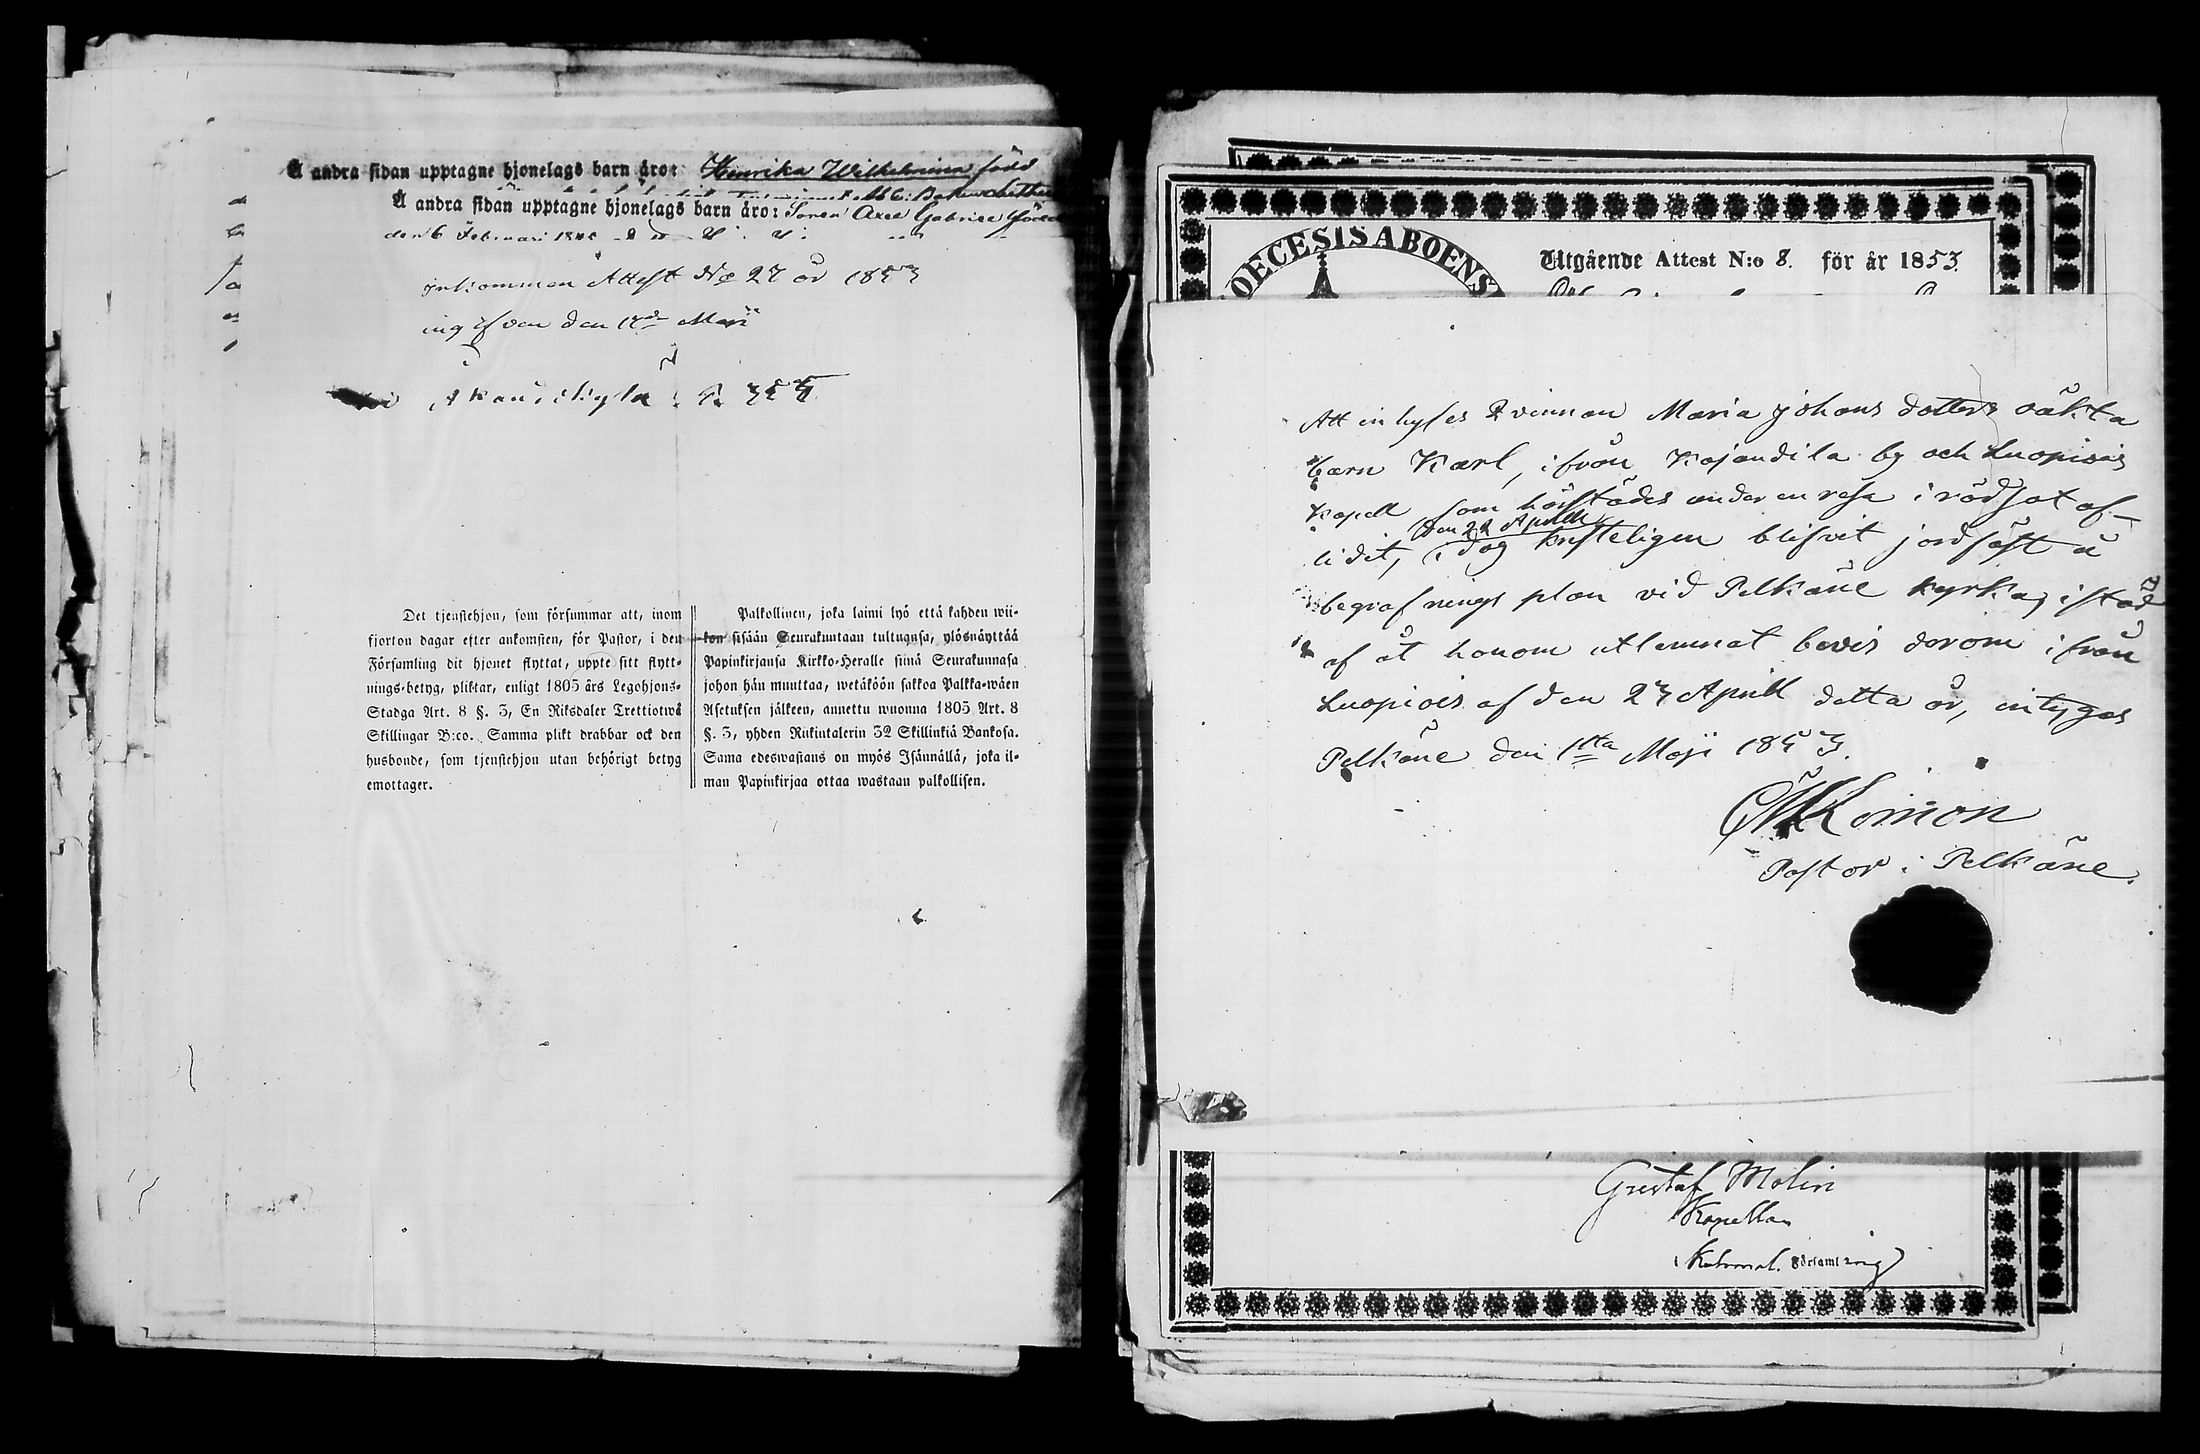 Å andra sidan upptagne hjonelags barn äro: Henrika Wilhelmina född
Å andra sidan upptagne hjonelags barn äro: Sonen Axel Gabriel född
den 6 Februari
inkommen Attest No 27 år 1853
ingifven den 17de Maji
Det tjenstehjon, som försummar att, inom
fjorton dagar efter ankomsten, för Pastor, i den
Församling dit hjonet flyttat, uppte sitt flytt-
nings-betyg, pliktar, enligt 1805 års Legohjons-
Stadga Art. 8 §. 3, En Riksdaler Trettiotwå
Skillingar B:co. Samma plikt drabbar ock den
husbonde, som tjenstehjon utan behörigt betyg
emottager.
Palkollinen, joka laimi lyö että kahden wii-
kon sisään Seurakuntaan tultuansa, ylösnäyttää
Papinkirjansa Kirkko-Herralle siinä Seurakunnasa
johon hän muuttaa, wetäköön sakkoa Palkka-wäen
Asetuksen jälkeen, annettu wuonna 1805 Art. 8
§. 3, yhden Riikintalerin 32 Skillinkiä Bankosa.
Sama edeswastaus on myös Isännällä, joka il-
man Papinkirjaa ottaa wastaan palkollisen.
DIOECESIS ABOENS
Utgående Attest N:o 8. för år 1853.
Att inhyses Qvinnan Maria Johans dotters oäkta
barn Karl, ifrån Kajandila by och Luopiois
Kapell som härstädes under en resa i rödsot af-
den 22 Aprill
lidit, i dag kristeligen blifvit jordfäst å
begrafnings plan vid Pelkäne kyrka, i stöd
af åt honom utlemnat bevis derom ifrån
Luopiois af den 23 Aprill detta år, intygas
Pelkäne den 1sta Maji 1853.
Pastor i Pelkäne.
Gustaf Molin
Kapellan
Församling